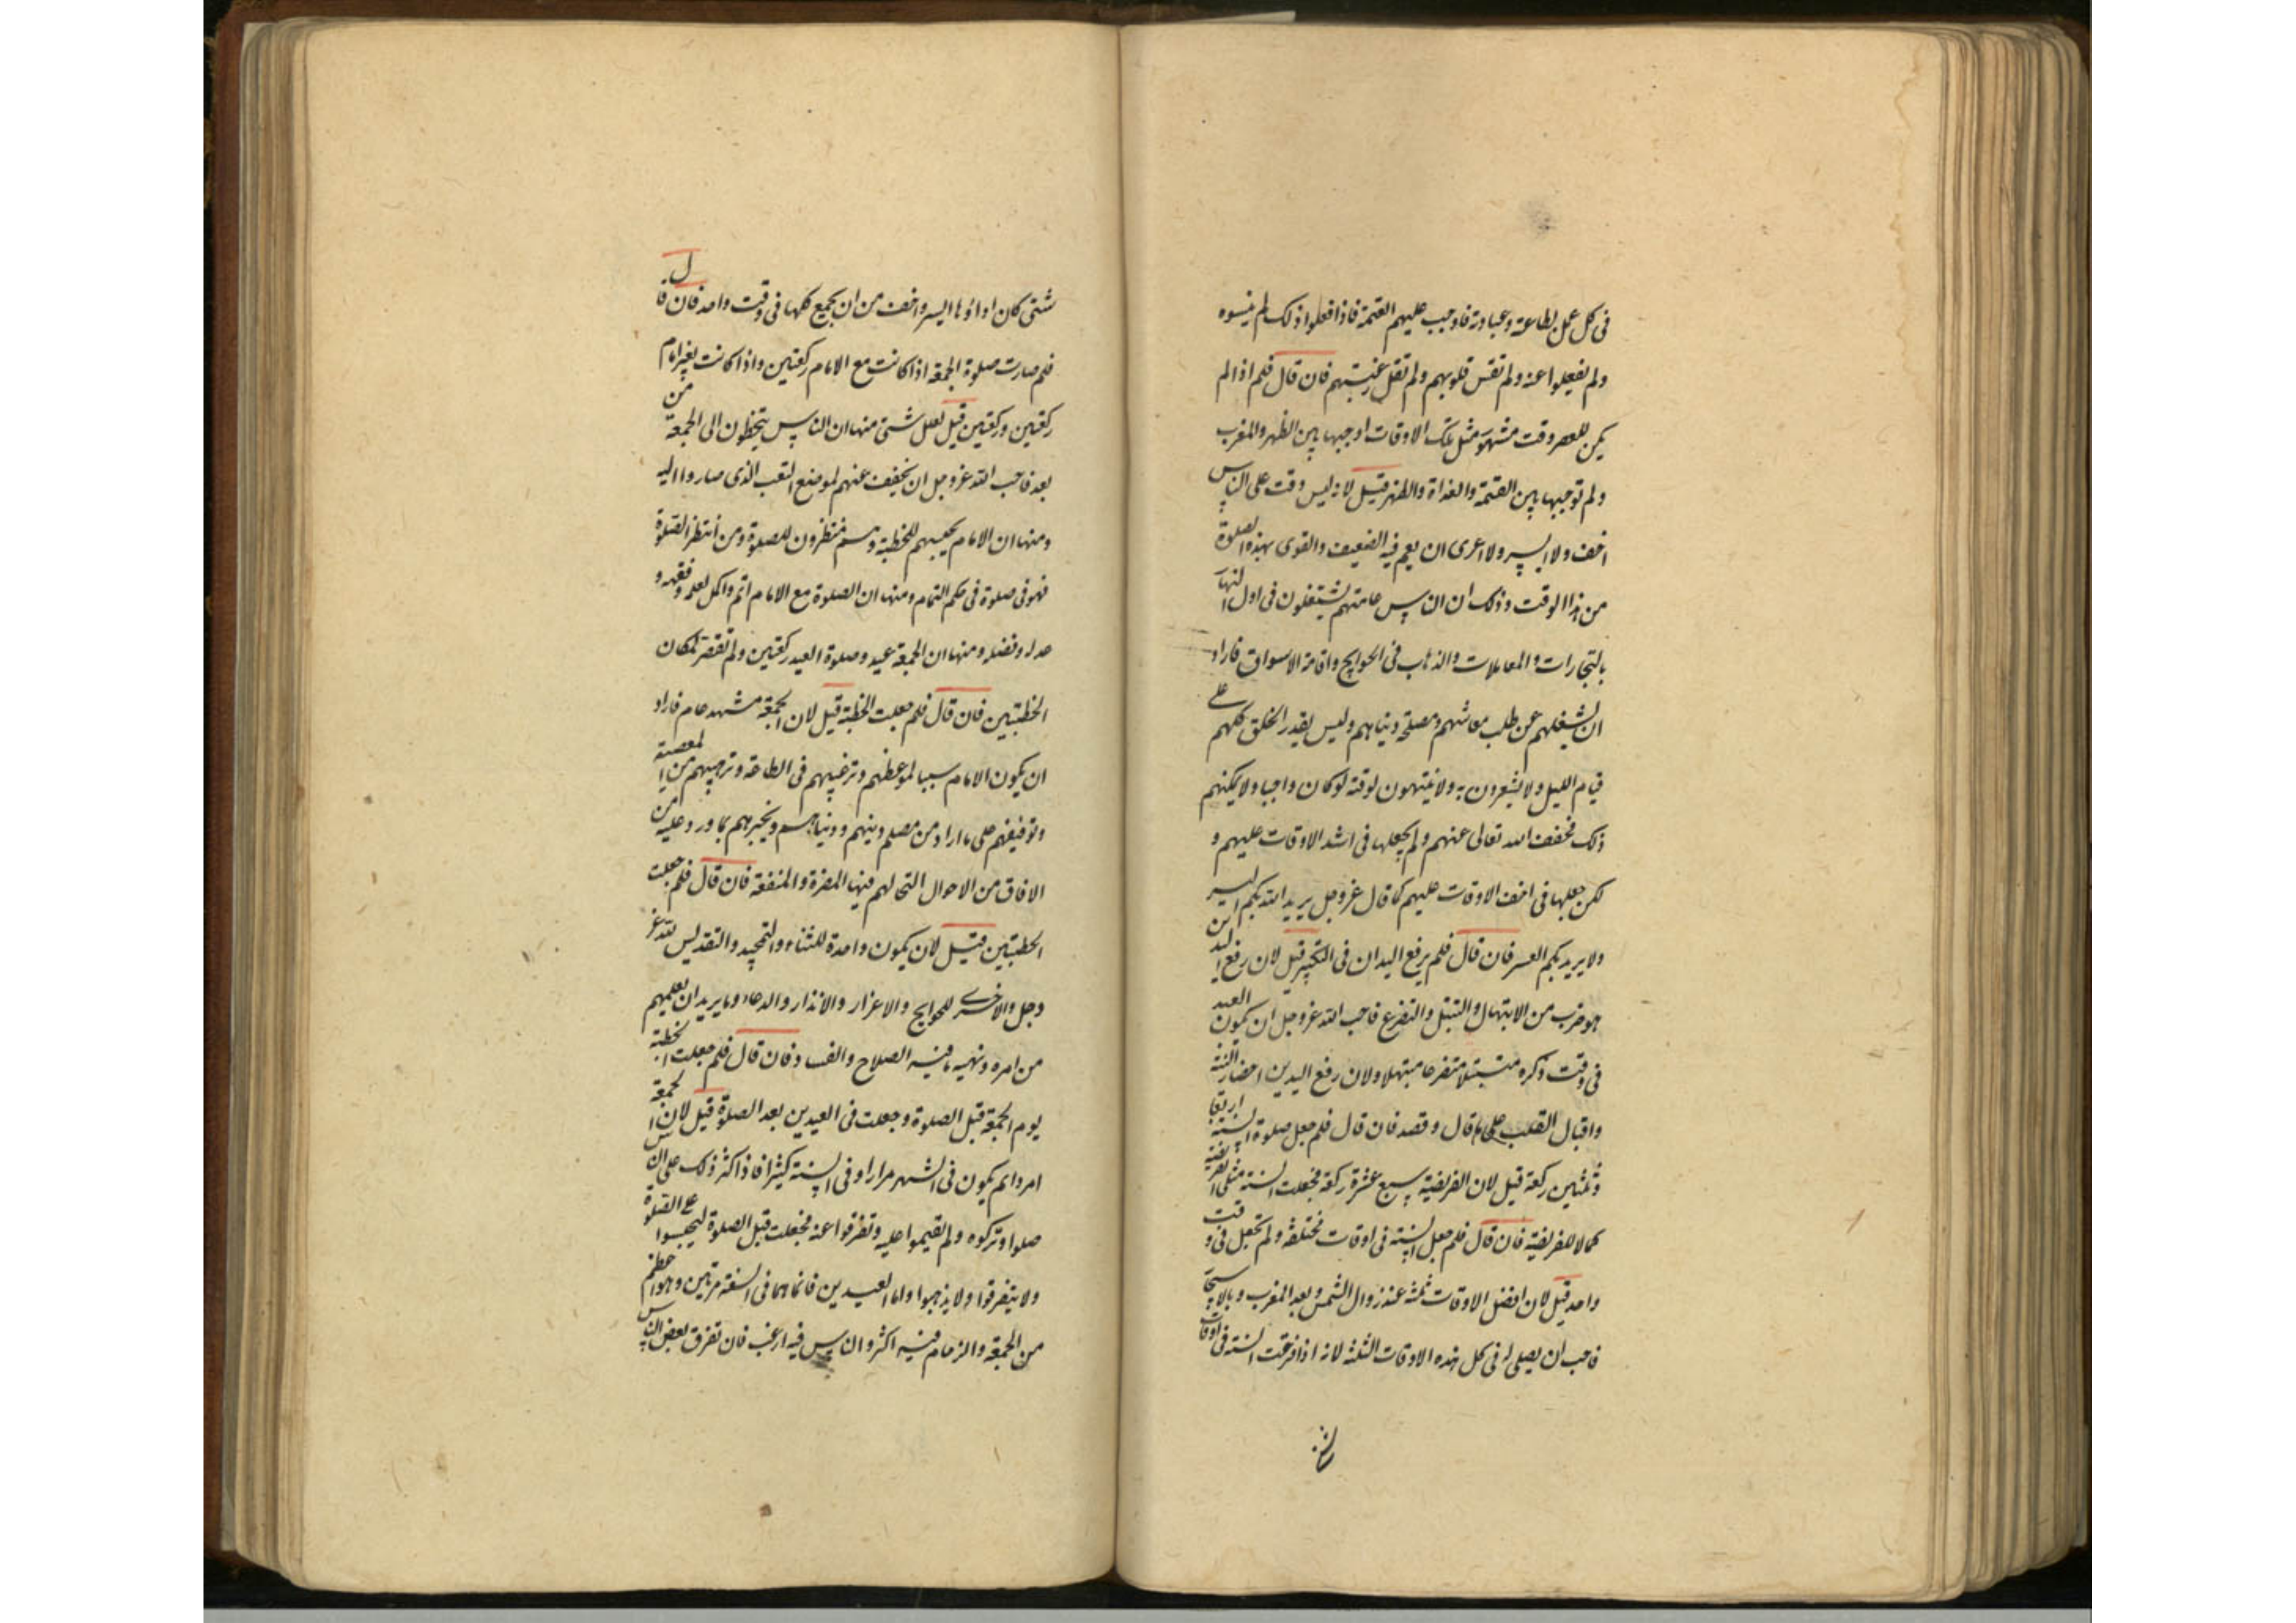 فى كل عمل بطاعة وعبادة فاوجب عليهم العتمة فاذا فعلوا ذلك لم ينسوه
ولم يغفلوا عنه ولم تقس قلوبهم ولم تقل رغبتهم فان قال فلم اذا لم
يكن للعصر وقت مشهور مثل تلك الاوقات اوجبها بين الظهر والمغرب
ولم توجبها بين العتمة والغداة والظهر قيل لانه ليس وقت على الناس
اخف ولا ايسر ولا احرى ان يعم فيه الضعيف والقوى بهذه الصلوة
من هذا الوقت وذلك ان الناس عامتهم يشتغلون فى اول النهار
بالتجارات والمعاملات والذهاب فى الحوايج واقامة الاسواق فاراد
ان لا يشغلهم عن طلب معاشهم ومصلحة دنياهم وليس يقدر الخلق كلهم على
قيام الليل ولا يشعرون به ولا ينتبهون لوقته لو كان واجبا ولا يمكنهم
ذلك فخفف الله تعالى عنهم ولم يجعلها فى اشد الاوقات عليهم و
لكن جعلها فى اخف الاوقات عليهم كما قال عز وجل يريد الله بكم اليسر
ولا يريد بكم العسر فان قال فلم يرفع اليدان فى التكبير قيل لان رفع اليدين
هو ضرب من الابتهال والتبتل والتضرع فاحب الله عز وجل ان يكون العبد
فى وقت ذكره متبتلا متضرعا مبتهلا ولان رفع اليدين احضار النية
واقبال القلب على ما قال وقصد فان قال فلم جعل صلوة السنة اربعا
وثلثين ركعة قيل لان الفريضة سبع عشرة ركعة فجعلت السنة مثلى الفريضة
كمالا للفريضة فان قال فلم جعل السنة فى اوقات مختلفة ولم تجعل فى وقت
واحد قيل لان افضل الاوقات ثلثة عند زوال الشمس وبعد المغرب وبالاسحار
فاحب ان يصلى له فى كل هذه الاوقات الثلثة لانه اذا فرقت السنة فى اوقات
شتى كان اداؤها ايسر واخف من ان يجمع كلها فى وقت واحد فان قال
فلم صارت صلوة الجمعة اذا كانت مع الامام ركعتين واذا كانت بغير امام
ركعتين وركعتين قيل لعلل شتى منها ان الناس يتخطون الى الجمعة من
بعد فاحب الله عز وجل ان يخفف عنهم لموضع التعب الذى صاروا اليه
ومنها ان الامام يحبسهم للخطبة وهم منتظرون للصلوة ومن انتظر الصلوة
فهو فى صلوة فى حكم التمام ومنها ان الصلوة مع الامام اتم واكمل لعلمه وفقهه و
عدله وفضله ومنها ان الجمعة عيد وصلوة العيد ركعتين ولم تقصر لمكان
الخطبتين فان قال فلم جعلت الخطبة قيل لان الجمعة مشهد عام فاراد
ان يكون الامام سببا لموعظتهم وترغيبهم فى الطاعة وترهيبهم من المعصية
وتوفيقهم على ما اراد من مصلحة دينهم ودنياهم ويخبرهم بما ورد عليه من
الافاق من الاحوال التى لهم فيها المضرة والمنفعة فان قال فلم جعلت
الخطبتين قيل لان يكون واحدة للثناء والتمجيد والتقديس لله عز
وجل والاخرى للحوايج والاعذار والانذار والدعاء وما يريد ان يعلمهم
من امره ونهيه ما فيه الصلاح والفساد فان قال فلم جعلت الخطبة
يوم الجمعة قبل الصلوة وجعلت فى العيدين بعد الصلوة قيل لان الجمعة
امر دائم يكون فى الشهر مرارا وفى السنة كثيرا فاذا كثر ذلك على الناس
صلوا وتركوه ولم يقيموا عليه وتفرقوا عنه فجعلت قبل الصلوة ليحبسوا على الصلوة
ولا يتفرقوا ولا يذهبوا واما العيدين فانما هما فى السنة مرتين وهو اعظم
من الجمعة والزحام فيه اكثر والناس فيه ارغب فان تفرق بعض الناس